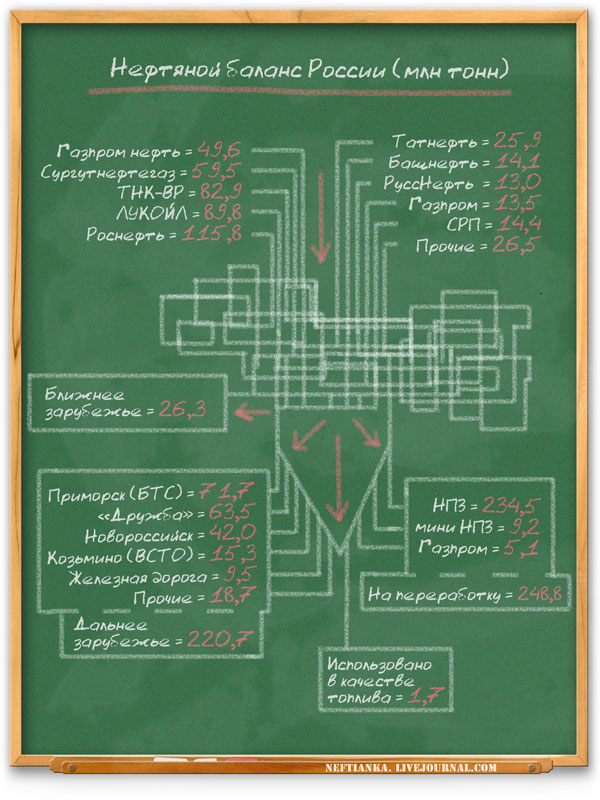 Нефтяной баланс России (млн тонн)
Газпром нефть = 49,6
Сургутнефтегаз = 59,5
ТНК-ВР = 82,9
ЛУКОЙЛ = 89,8
Роснефть = 115,8
Татнефть = 25,9
Башнефть = 14,1
РуссНефть = 13,0
Газпром = 13,5
СРП = 14,4
Прочие = 26,5
Ближнее
зарубежье = 26,3
Приморск (БТС) = 71,7
«Дружба» = 63,5
Новороссийск = 42,0
Козьмино (ВСТО) = 15,3
Железная дорога = 9,5
Прочие = 18,7
Дальнее
зарубежье = 220,7
НПЗ = 234,5
мини НПЗ = 9,2
Газпром = 5,1
На переработку = 248,8
Использовано
в качестве
топлива = 1,7
NEFTIANKA. LIVEJOURNAL.COM